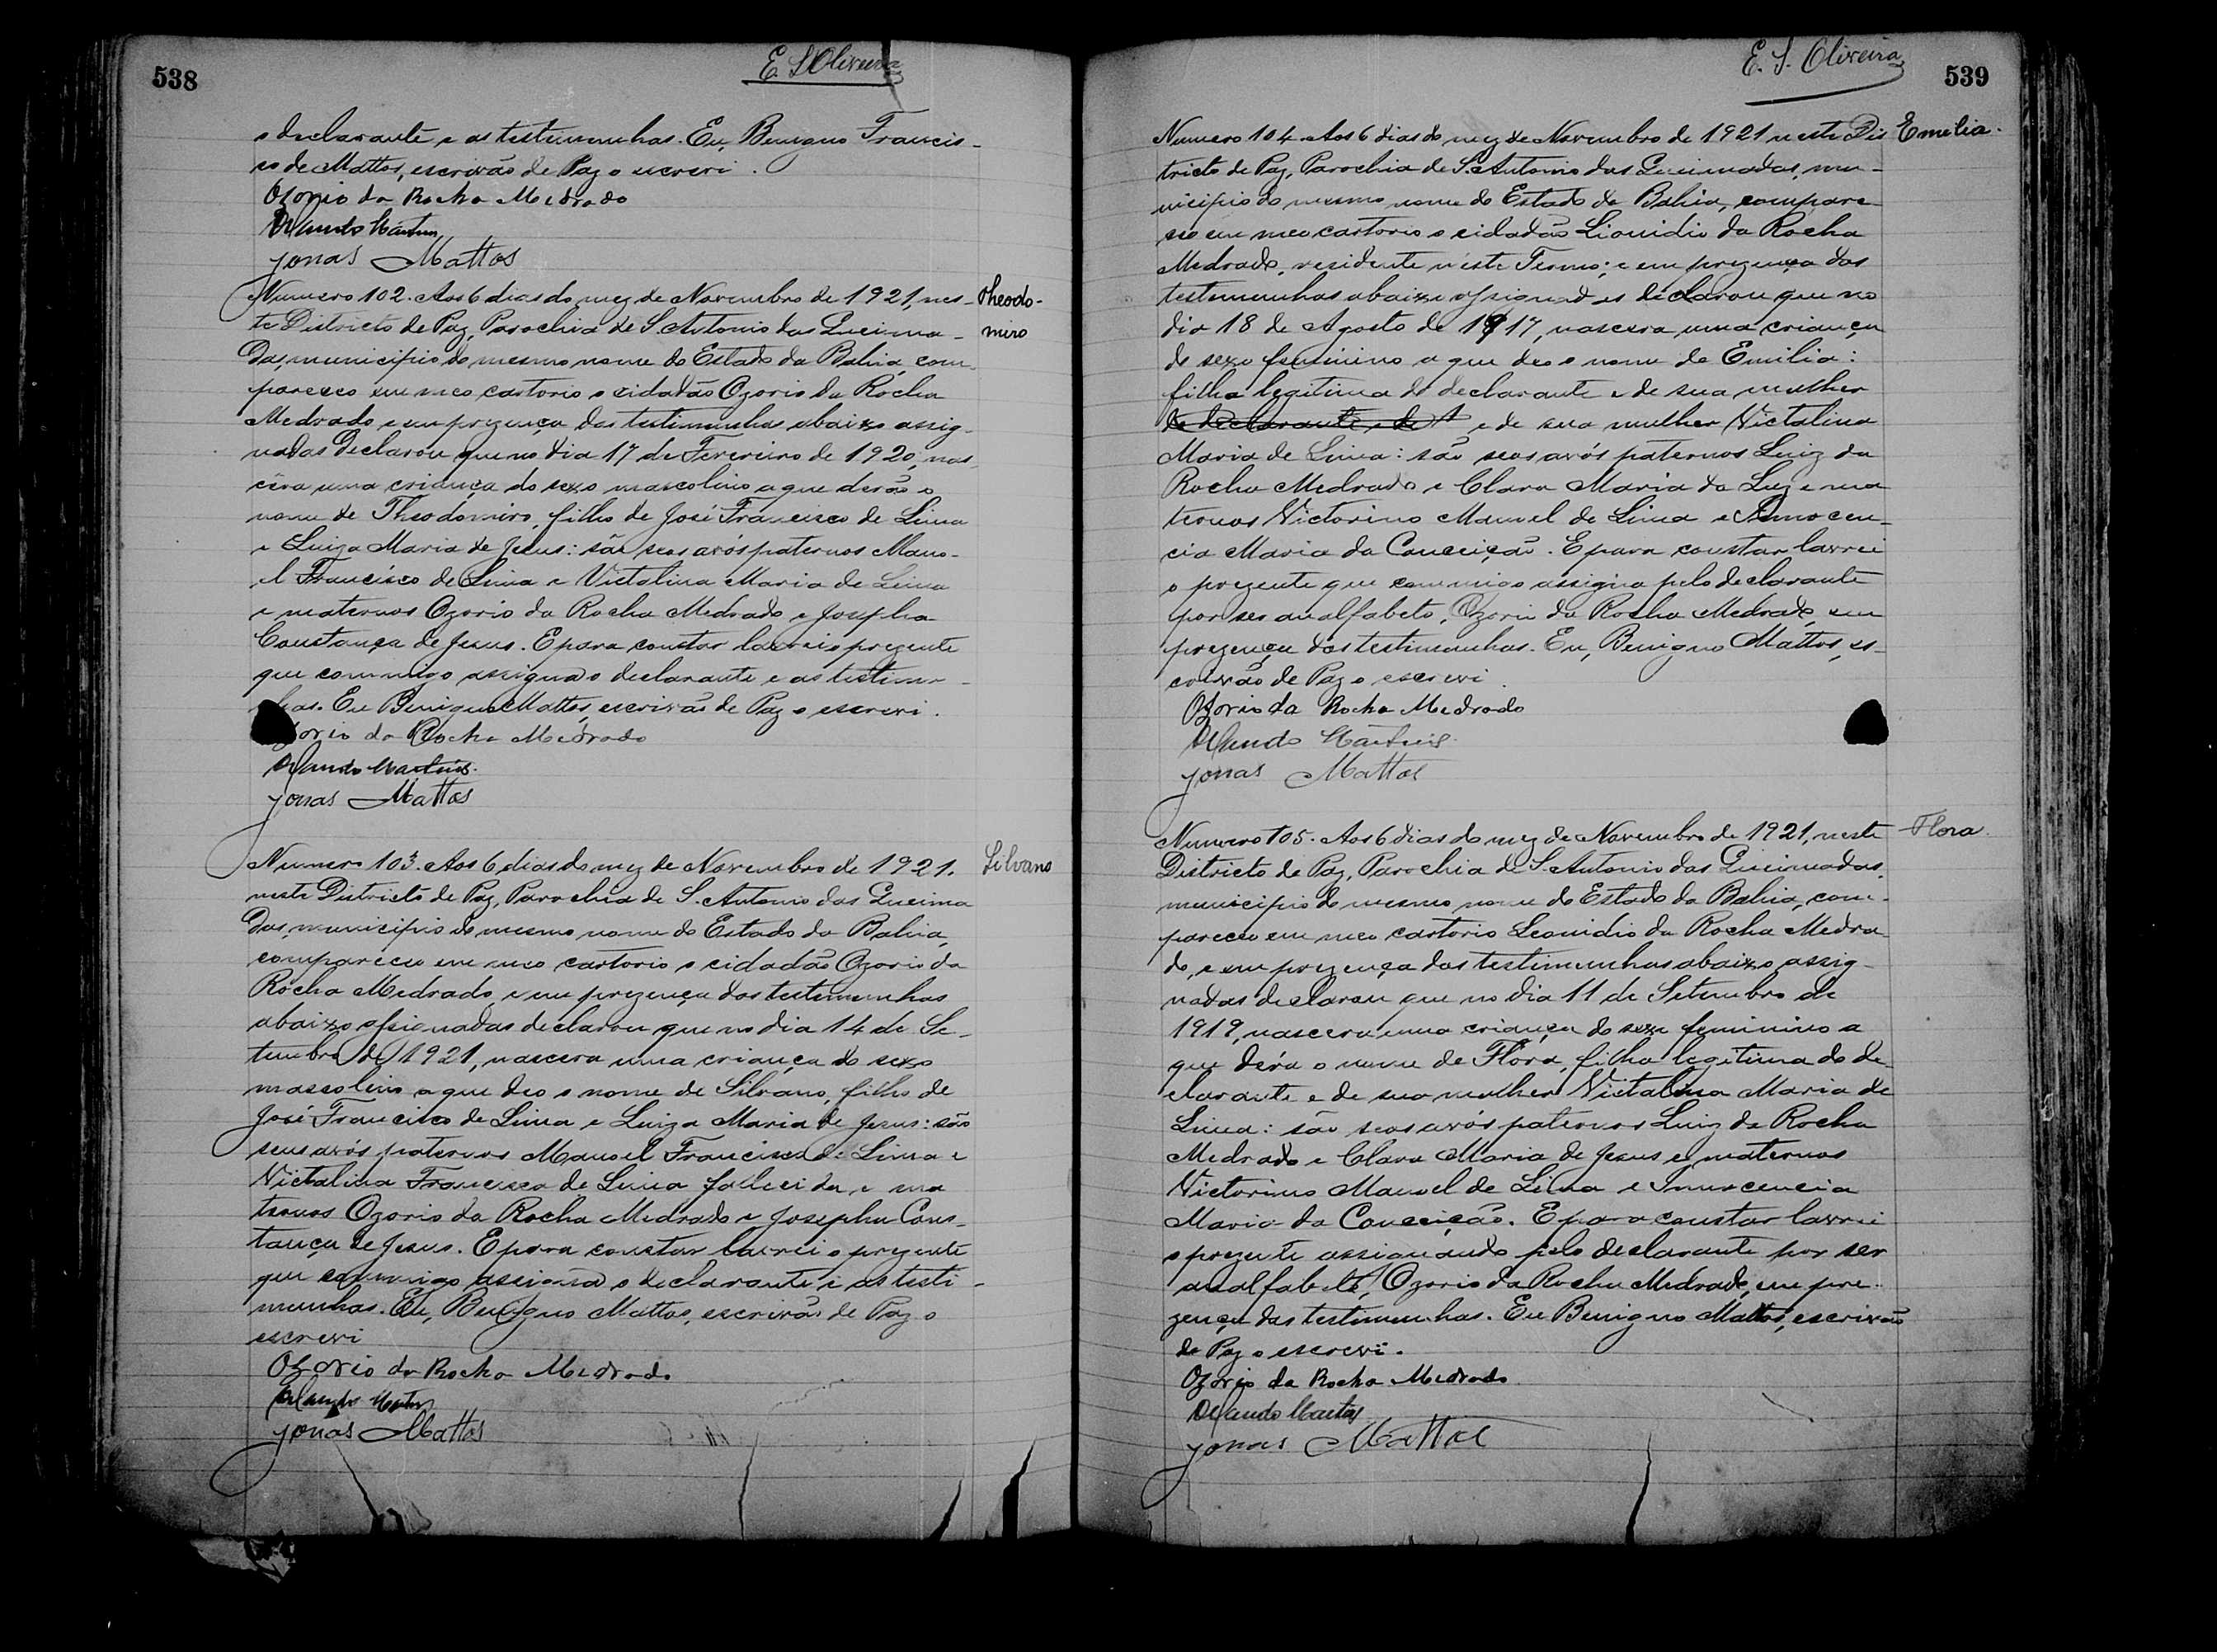 538
E. S. Oliveira
o declarante e as testimunhas. Eu, Benigno Francis-
co de Mattos, escrivão de Paz o escrevi.
Ozorio da Rocha Medrado
Orlando Martins
Jonas Mattos
Numero 102. Aos 6 dias do mez de Novembro de 1921, nes-
Theodo-
te Districto de Paz, Parochia de S. Antonio das Queima-
miro
das, municipio do mesmo nome do Estado da Bahia, com-
pareceo em meo cartorio o cidadão Ozorio da Rocha
Medrado, e em prezença das testimunhas abaixo assig-
nadas declarou que no dia 17 de Fevereiro de 1920, nas-
cêra uma criança do sexo mascolino a que derão o
nome de Theodomiro, filho de José Francisco de Lima
e Luiza Maria de Jesus: são seos avós paternos Mano-
el Francisco de Lima e Victalina Maria de Lima
e maternos Ozorio da Rocha Medrado e Josepha
Constança de Jesus. E para constar lavrei o prezente
que commigo assigna o declarante e as testimu-
nhas. Eu Benigno Mattos, escrivão de Paz o escrevi.
Ozorio da Rocha Medrado
Orlando Martins.
Jonas Mattos
Numero 103. Aos 6 dias do mez de Novembro de 1921.
Silvano
neste Districto de Paz, Parochia de S. Antonio das Queima
das, municipio do mesmo nome do Estado da Bahia,
compareceu em meo cartorio o cidadão Ozorio da
Rocha Medrado, e em prezença das testimunhas
abaixo assignadas declarou que no dia 14 de Se-
tembro de 1921, nascera uma criança do sexo
mascolino a que deo o nome de Silvano, filho de
José Francisco de Lima e Luiza Maria de Jesus: são
seus avós paternos Manoel Francisco de Lima e
Victalina Francisca de Lima fallecida, e ma
ternos Ozorio da Rocha Medrado e Josepha Cons-
tança de Jesus. E para constar lavrei o prezente
que commigo assigna o declarante e as testi-
munhas. Eu, Benigno Mattos, escrivão de Paz o
escrevi
Ozorio da Rocha Medrado
Orlando Martins
Jonas Mattos
E. S. Oliveira
539
Numero 104. Aos 6 dias do mez de Novembro de 1921 neste Dis
Emilia.
tricto de Paz, Parochia de S. Antonio das Queimadas, mu-
nicipio do mesmo nome do Estado da Bahia, compare-
ceo em meo cartorio o cidadão Lionidio da Rocha
Medrado, residente n'este Termo; e em prezença das
testemunhas abaixo assignadas declarou que no
dia 18 de Agosto de 1917, nascera uma criança
do sexo feminino a que deo o nome de Emilia:
filha legitima do declarante e de sua mulher
do declarante e de e de sua mulher Victalina
Maria de Lima: são seos avós paternos Luiz da
Rocha Medrado e Clara Maria da Luz e ma
ternos Victorino Manoel de Lima e Innocen-
cia Maria da Conceição. E para constar lavrei
o prezente que commigo assigna pelo declarante
por ser analfabeto, Ozorio da Rocha Medrado, em
prezença das testimunhas. Eu, Benigno Mattos, es-
crivão de Paz o escrevi.
Ozorio da Rocha Medrado
Orlando Martins.
Jonas Mattos
Numero 105. Aos 6 dias do mez de Novembro de 1921, neste
Flora.
Districto de Paz, Parochia de S. Antonio das Queimadas,
municipio do mesmo nome do Estado da Bahia, com-
pareceu em meo cartorio Leonidio da Rocha Medra-
do, e em prezença das testimunhas abaixo assig-
nadas declarou que no dia 11 de Setembro de
1919, nascera uma criança do sexo feminino a
que déra o nome de Flora, filha legitima do de
clarante e de sua mulher Victalina Maria de
Lima: são seos avós paternos Luiz da Rocha
Medrado e Clara Maria de Jesus e maternos
Victorino Manoel de Lima e Innocencia
Maria da Conceição. E para constar lavrei
o prezente assignando pelo declarante por ser
analfabeto, Ozorio da Rocha Medrado, em pre-
zença das testimunhas. Eu Benigno Mattos, escrivão
de Paz o escrevi.
Ozorio da Rocha Medrado
Orlando Martins
Jonas Mattos